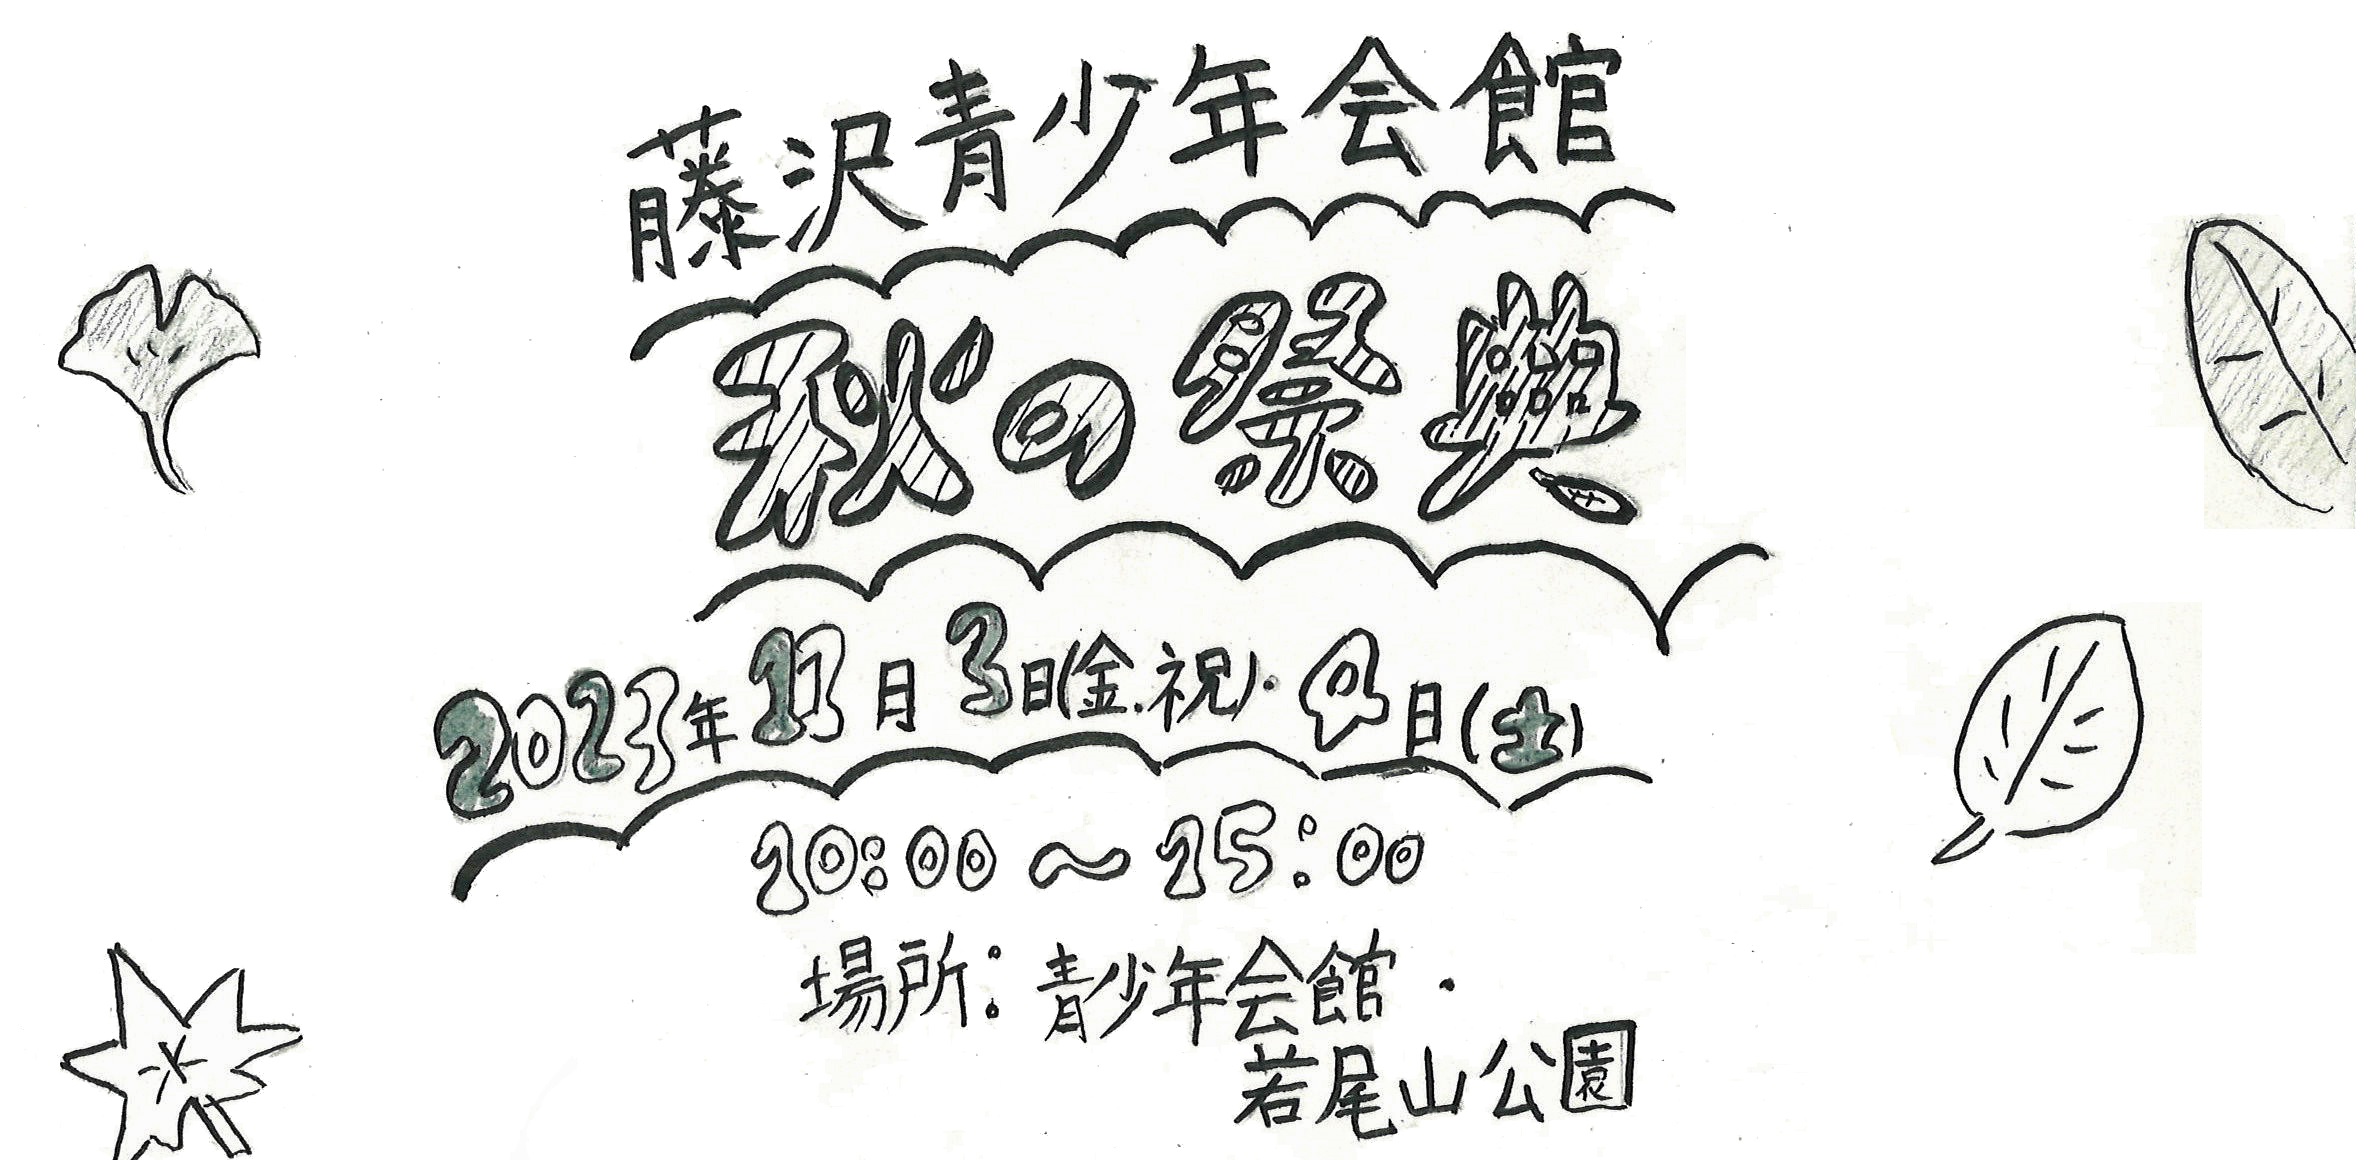 藤沢青少年会館
秋の祭典
2023年11月3日(金.祝)・4日(土)
10:00～15:00
場所：青少年会館・
若尾山公園